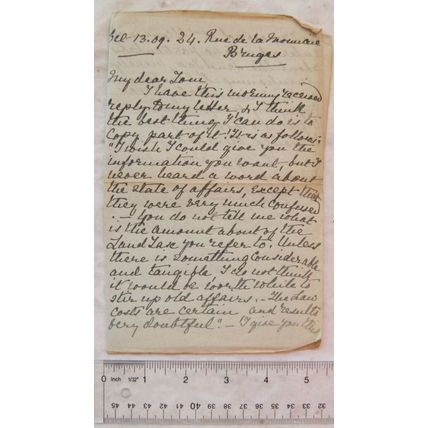 Dec 13.09. 24. Rue de la Monnaie
Bruges
My dear Tom
I have this morning received
reply to my letter, & I think
the best thing I can do is to
copy part of it. It is as follows:
"I wish I could give you the
information you want, but I
never heard a word about
the state of affairs, except that
they were very much confused
. — You do not tell me what
is the amount about of the
Land Tax you refer to. Unless
there is something considerable
and tangible I do not think
it would be worth while to
stir up old affairs. – The Law
costs are certain and results
very doubtful". – I give you this
0 inch 1/32" 1 2 3 4 5
45 44 42 40 39 37 35 34 32